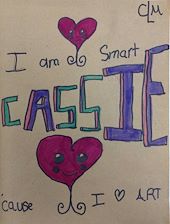 CLM
I am Smart
CASSIE
'cause I ♡ ART